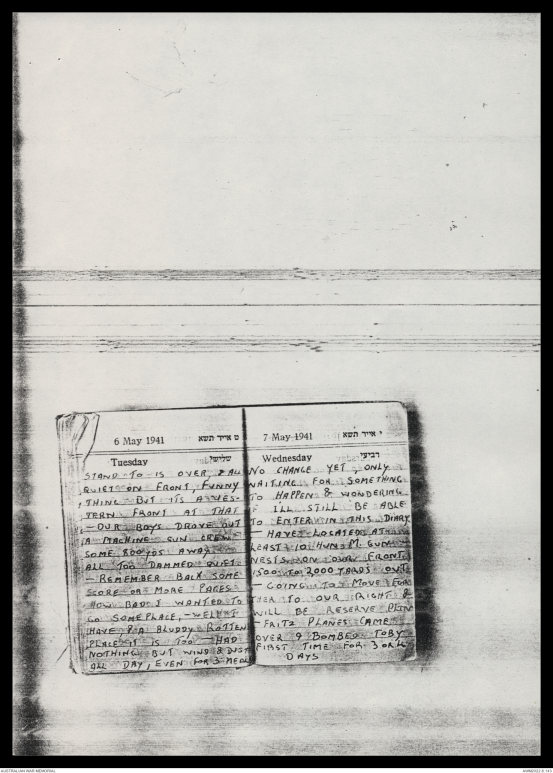 6 May 1941 ט אייר תשא
Tuesday שלישי
STAND TO IS OVER & ALL
QUIET ON FRONT, FUNNY
THING BUT ITS A WES-
TERN FRONT AT THAT
- OUR BOYS DROVE OUT
A MACHINE GUN CREW
SOME 800 YDS AWAY -
ALL TOO DAMMED QUIET
- REMEMBER BACK SOME
SCORE OR MORE PAGES
HOW BAD I WANTED TO
GO SOMEPLACE, - WELL I
HAVE & A BLUDDY ROTTEN
PLACE IT IS TOO - HAD
NOTHING BUT WIND & DUST
ALL DAY, EVEN FOR 3 MEALS
7 May 1941 י אייר תשא
Wednesday רביעי
NO CHANGE YET, ONLY
WAITING FOR SOMETHING
TO HAPPEN & WONDERING
IF ILL STILL BE ABLE
TO ENTER IN THIS DIARY
- HAVE LOCATED AT
LEAST 10 HUN M. GUN
NESTS ON OUR FRONT,
1500 TO 2,000 YARDS OUT
- GOING TO MOVE FUR
THER TO OUR RIGHT &
WILL BE RESERVE PLTN
- FRITZ PLANES CAME
OVER & BOMBED TOBY
FIRST TIME FOR 3 OR 4
DAYS
AUSTRALIAN WAR MEMORIAL